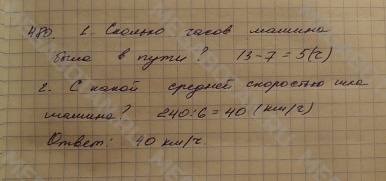 480. 1. Сколько часов машина
была в пути? 13-7=5(ч)
2. С какой средней скоростью шла
машина? 240:6=40 (км/ч)
Ответ: 40 км/ч.